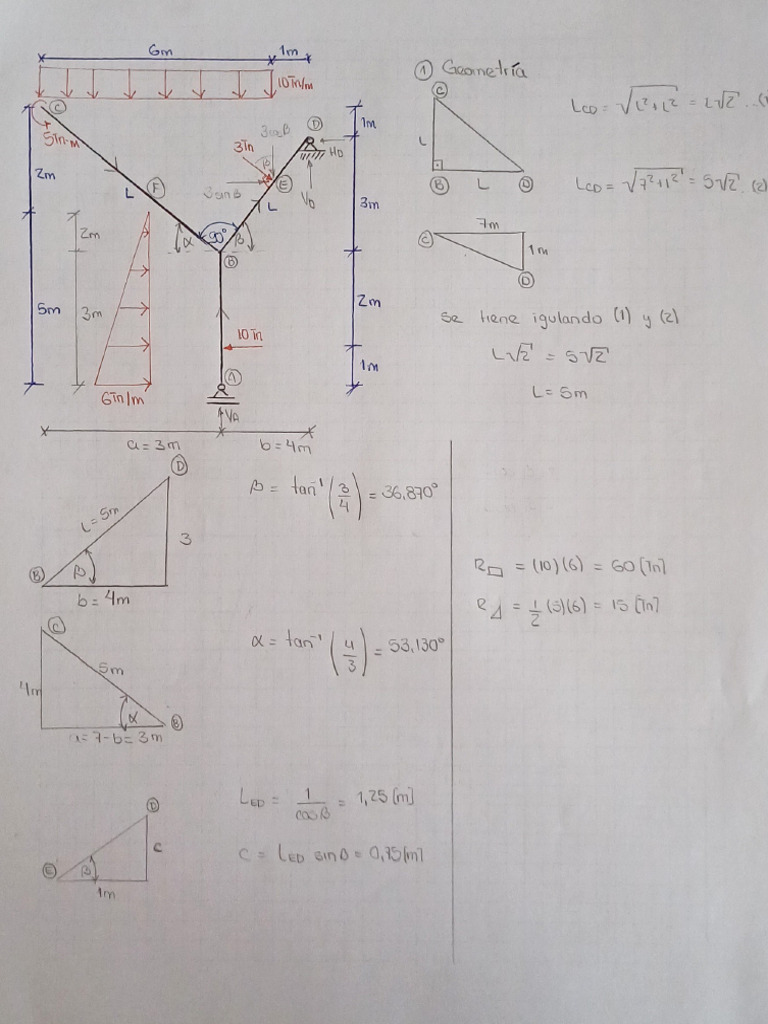 6m
1m
10Tn/m
C
5Tn-m
3cosβ
3Tn
β
D
1m
HD
2m
L
F
3sinβ
E
L
VD
3m
2m
α
90°
β
B
5m
3m
2m
10Tn
1m
A
6Tn/m
VA
a=3m
b=4m
① Geometría
C
L
B
L
D
LCD = √(L²+L²) = L√2 ...(1
LCD = √(7²+1²) = 5√2 .(2)
7m
C
1m
D
Se tiene igulando (1) y (2)
L√2 = 5√2
L = 5m
D
L=5m
3
β
B
b=4m
β = tan⁻¹(3/4) = 36,870°
C
4m
5m
α
B
a=7-b=3m
α = tan⁻¹(4/3) = 53,130°
R▭ = (10)(6) = 60[Tn]
R◿ = 1/2 (5)(6) = 15[Tn]
D
C
E
β
1m
LED = 1/cosβ = 1,25[m]
C = LED sinβ = 0,75[m]